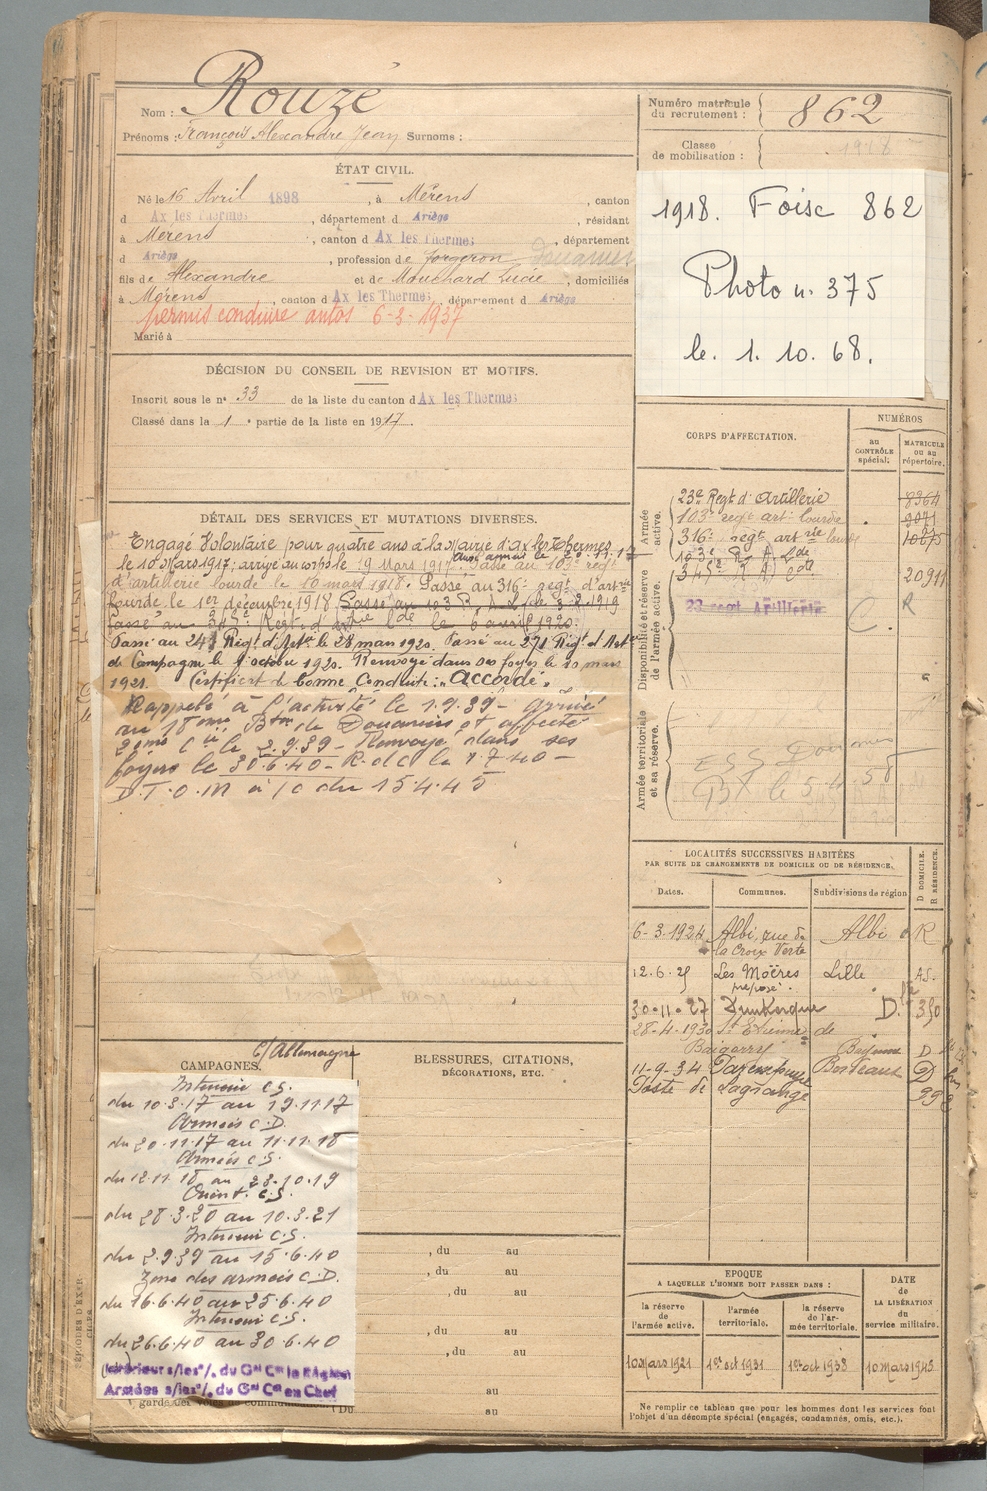 Nom : Rouzé
Prénoms : François Alexandre Jean Surnoms :
Numéro matricule du recrutement : 862
Classe de mobilisation : 1918
ÉTAT CIVIL.
Né le 16 Avril 1898, à Mérens, canton
d Ax les Thermes, département d Ariège, résidant
à Mérens, canton d Ax les Thermes, département
d Ariège, profession de forgeron Douanier
fils de Alexandre et de Mouchard Lucie, domiciliés
à Mérens, canton d Ax les Thermes, département d Ariège
permis conduire autos 6-3-1937
Marié à
1918. Foix 862
Photo n. 375
le. 1. 10. 68.
DÉCISION DU CONSEIL DE REVISION ET MOTIFS.
Inscrit sous le n° 33 de la liste du canton d Ax les Thermes
Classé dans la 1 e partie de la liste en 1917.
DÉTAIL DES SERVICES ET MUTATIONS DIVERSES.
Engagé Volontaire pour quatre ans à la Mairie d'Ax les Thermes
le 10 Mars 1917; arrivé au corps le 19 Mars 1917. Passé au 103e regt
d'artillerie lourde le 10 mars 1918. Passé au 316e regt d'artrie
lourde le 1er décembre 1918. Passé au 103 R.A.L. le 3.2.1919
Passé au 345e Regt d'artrie lde le 6 avril 1920.
Passé au 24 Régt d'Artie le 28 mars 1920. Passé au 271 Régt d'Artie
de Campagne le 1 octobre 1920. Renvoyé dans ses foyers le 10 mars
1921. Certificat de bonne Conduite : "Accordé".
Rappelé à l'activité le 1.9.39 - arrivé
au 18ème Bton de Douaniers et affecté
2ème Cie le 2.9.39 - Renvoyé dans ses
foyers le 30.6.40 - R.d.c le 1.7.40 -
D.T.O.M à/c du 15.4.45
CORPS D'AFFECTATION.
NUMÉROS
au CONTRÔLE spécial.
MATRICULE ou au répertoire.
Armée active.
23e Regt d'Artillerie 8364
103e regt artie lourde 9071
316e regt artrie lourde
103e R.A.Lde
345e R.A.Lde 20911
Disponibilité et réserve de l'armée active.
23 regt Artillerie
C. R
Armée territoriale et sa réserve.
ESS Douanes
BX le 5.4.58
LOCALITÉS SUCCESSIVES HABITÉES
PAR SUITE DE CHANGEMENTS DE DOMICILE OU DE RÉSIDENCE.
D DOMICILE. R RÉSIDENCE.
Dates. Communes. Subdivisions de région
6-3-1924 Albi, rue de la Croix Verte Albi R
12.6.25 Les Moëres préposé. Lille
30-11-27 Dunkerque D.
28-4-1930 St Etienne de Baïgorry Bayonne D
11-9-34 Bordeaux D
Poste de Lagrange
C/Allemagne
CAMPAGNES.
BLESSURES, CITATIONS, DÉCORATIONS, ETC.
Interieur C.S.
du 10.3.17 au 19.11.17
Armées C.D.
du 20.11.17 au 11.11.18
Armées C.S.
du 12.11.18 au 23.10.19
Orient. C.S.
du 28.3.20 au 10.3.21
Interieur C.S.
du 2.9.39 au 15.6.40
Zone des armées C.D.
du 16.6.40 au 25.6.40
Interieur C.S.
du 26.6.40 au 30.6.40
Intérieur s/les°/. du Gal Ct la Région
Armées s/les°/. du Gal Ct en Chef
, du au
, du au
, du au
, du au
, du au
au
Du au
EPOQUE
A LAQUELLE L'HOMME DOIT PASSER DANS :
la réserve de l'armée active.
l'armée territoriale.
la réserve de l'armée territoriale.
DATE DE LA LIBÉRATION du service militaire.
10 Mars 1921
1er oct 1931
1er oct 1938
10 Mars 1945
Ne remplir ce tableau que pour les hommes dont les services font
l'objet d'un décompte spécial (engagés, condamnés, omis, etc.).